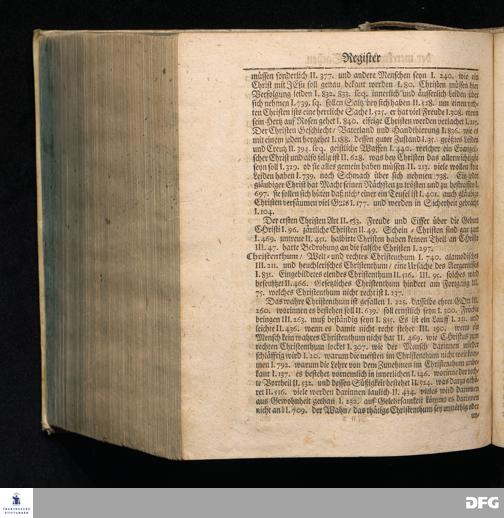 Register
müssen sonderlich II. 377. und andere Menschen seyn I. 240. wie ein
Christ mit JEsu soll genau bekant werden I. 80. Christen müssen hier
Verfolgung leiden I. 832. 833. seq. innerlich und äusserlich leiden über
sich nehmen I. 739. sq. sollen Saltz bey sich haben II. 528. um einen rech-
ten Christen ists eine herrliche Sache I. 525. er hat viel Freude I. 308. wem
sein Hertz auf Rosen gehet I. 840. eifrige Christen werden verlachet I. 215.
Der Christen Geschlecht/ Vaterland und Handthierung I. 836. wie es
mit einem jeden hergehet I. 188. dessen guter Zustand I. 35. größtes Leiden
und Creutz II. 794. seq. geistliche Waffen I. 440. welcher ein Evangeli-
scher Christ und also selig ist II. 628. was bey Christen das allerwichtigste
seyn soll I. 329. ob sie alles gemein haben müssen II. 213. viele wollen kein
Leiden haben I. 739. noch Schmach über sich nehmen 738. Ein jeder
gläubiger Christ hat Macht seinen Nächsten zu trösten und zu bestraffen I.
697. sie sollen sich hüten daß nicht einer ein Teufel ist I. 401. auch gläubige
Christen versäumen viel Guts I. 177. und werden in Sicherheit gebracht
I. 104.
Der ersten Christen Art II. 153. Freude und Eiffer über die Geburt
Christi I. 96. zärtliche Christen II. 49. Schein-Christen sind gar zart
I. 469. untreue II. 411. halbirte Christen haben keinen Theil an Christo
III. 47. harte Bedrohung an die falsche Christen I. 297.
Christenthum/ Welt- und rechtes Christenthum I. 740. alamodisches
III. 211. und heuchlerisches Christenthum/ eine Ursache des Aergernisses
I. 831. Eingebildetes elendes Christenthum II. 116. III. 95. solches wird
beseufzet II. 466. Gesetzliches Christenthum hindert am Fortgang III.
75. welches Christenthum nicht recht ist I. 237.
Das wahre Christenthum ist gefallen I. 225. dasselbe ehret GOtt III.
260. worinnen es bestehen soll II. 639. soll ernstlich seyn I. 300. Früchte
bringen III. 263. muß beständig seyn I. 815. Es ist ein Lauff I. 251. und
leichte II. 436. wenn es damit nicht recht stehet III. 190. wenn ein
Mensch kein wahres Christenthum nicht hat II. 469. wie Christus zum
rechten Christenthum locket I. 307. wie der Mensch darinnen wieder
schläffrig wird I. 20. warum die meisten im Christenthum nicht weit kom-
men I. 792. warum die Lehre von dem Zunehmen im Christenthum unbe-
kant I. 137. es bestehet vornemlich in innerlichen I. 146. worinne der rech-
te Vortheil II. 532. und dessen Süßigkeit bestehet II. 724. was darzu gehö-
ret II. 516. viele werden darinnen laulich II. 434. vieles wird darinnen
aus Gewohnheit gethan I. 232. auf Gelehrsamkeit kömmt es darinnen
nicht an II. 709. der Wahn/ das thätige Christenthum sey unnöthig oder
un-
FRANCKESCHE
STIFTUNGEN
DFG